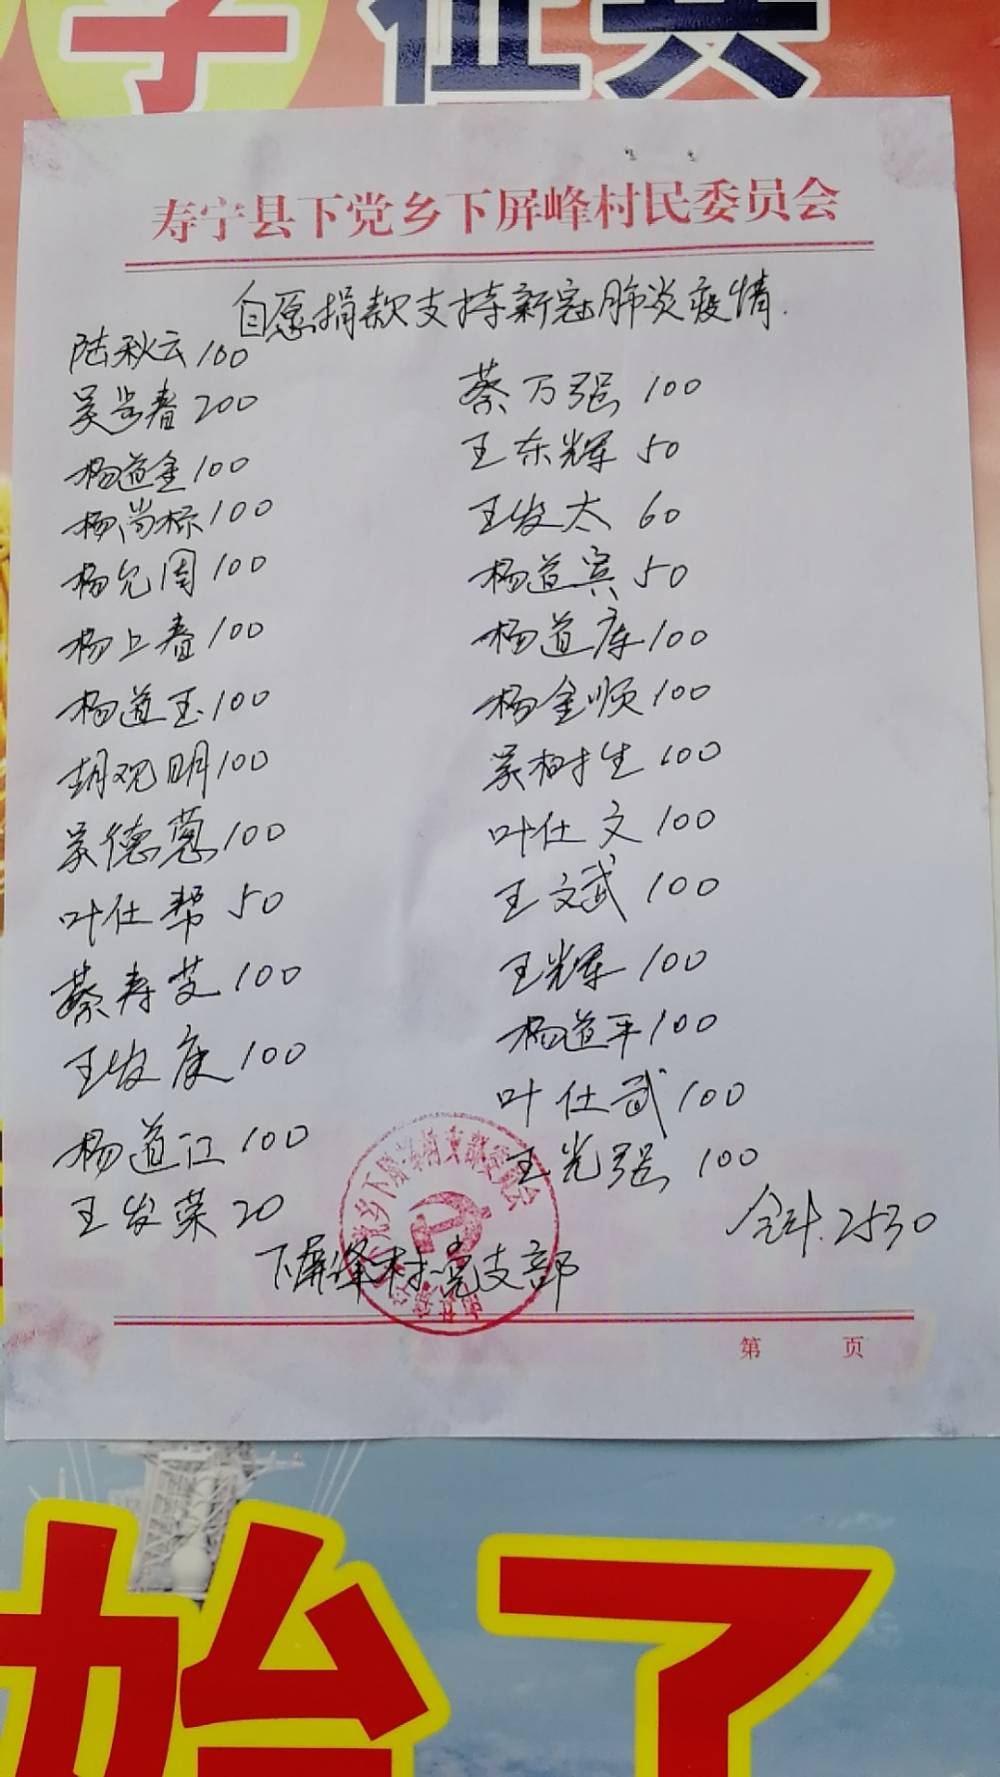 征兵
寿宁县下党乡下屏峰村民委员会
自愿捐款支持新冠肺炎疫情.
陆秋云100
吴步春200
杨道金100
杨尚标100
杨允周100
杨上春100
杨道玉100
胡观明100
吴德葱100
叶仕帮50
蔡寿芝100
王发康100
杨道江100
王发荣20
蔡万强100
王东辉50
王发太60
杨道宾50
杨道库100
杨金顺100
吴树生100
叶仕文100
王文斌100
王辉100
杨道平100
叶仕武100
王光强100
合计.2530
下屏峰村党支部
第 页
始了